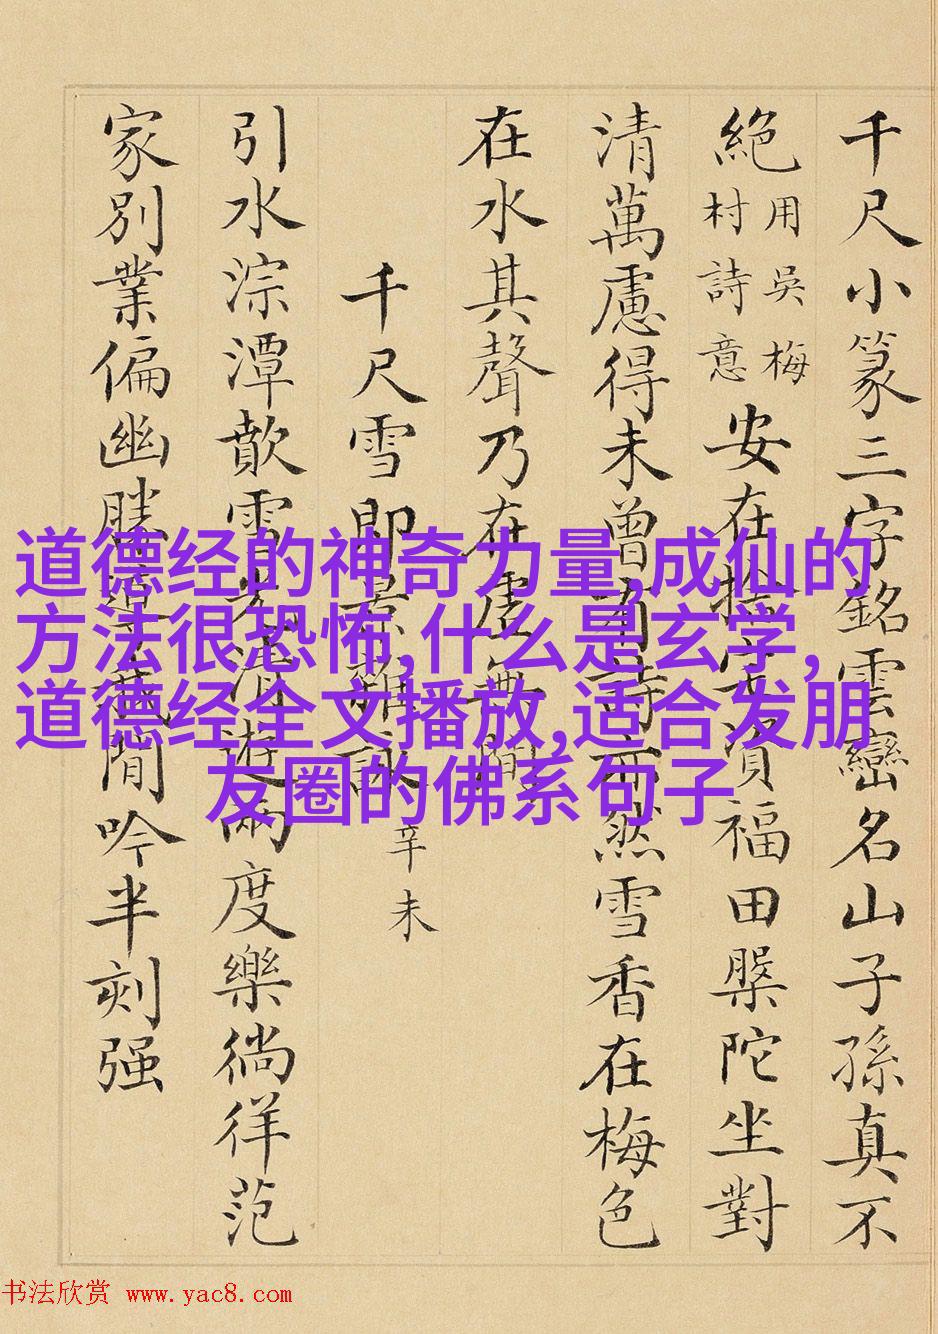 千尺小篆三字銘雲巒名山子孫真不
絶
用吳梅
村詩意
安在捨宅資福田槃陀坐對
清萬慮得未曾有詩亦然雪香在梅色
在水其聲乃在虛無間
千尺雪即景雜詠
辛未
引水淙潭歕雪清遊兩度樂徜徉范
家別業偏幽勝閒吟半刻强
道德经的神奇力量,成仙的
方法很恐怖,什么是玄学,
道德经全文播放,适合发朋
友圈的佛系句子
书法欣赏 www.yac8.com